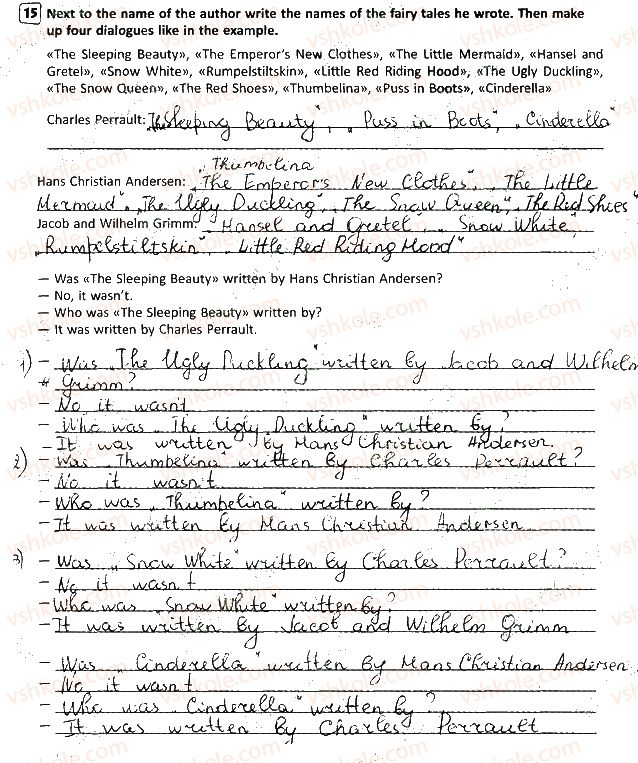 15 Next to the name of the author write the names of the fairy tales he wrote. Then make
up four dialogues like in the example.
«The Sleeping Beauty», «The Emperor's New Clothes», «The Little Mermaid», «Hansel and
Gretel», «Snow White», «Rumpelstiltskin», «Little Red Riding Hood», «The Ugly Duckling»,
«The Snow Queen», «The Red Shoes», «Thumbelina», «Puss in Boots», «Cinderella»
Charles Perrault: „The Sleeping Beauty", „Puss in Boots", „Cinderella"
„Thumbelina
Hans Christian Andersen: "The Emperor's New Clothes", „The Little
Mermaid", „The Ugly Duckling, „The Snow Queen", „The Red Shoes"
Jacob and Wilhelm Grimm: „Hansel and Gretel", „Snow White",
„Rumpelstiltskin", „Little Red Riding Hood"
— Was «The Sleeping Beauty» written by Hans Christian Andersen?
— No, it wasn't.
— Who was «The Sleeping Beauty» written by?
— It was written by Charles Perrault.
1) – Was „The Ugly Duckling" written by Jacob and Wilhelm
Grimm?
– No it wasn't
– Who was „The Ugly Duckling" written by?
– It was written by Hans Christian Andersen.
2) – Was „Thumbelina" written by Charles Perrault?
– No it wasn't
– Who was „Thumbelina" written by?
– It was written by Hans Christian Andersen
3) – Was „Snow White" written by Charles Perrault?
– No it wasn't
– Who was „Snow White" written by?
– It was written by Jacob and Wilhelm Grimm
– Was „Cinderella" written by Hans Christian Andersen
– No it wasn't
– Who was „Cinderella" written by?
– It was written by Charles Perrault
vshkole.com